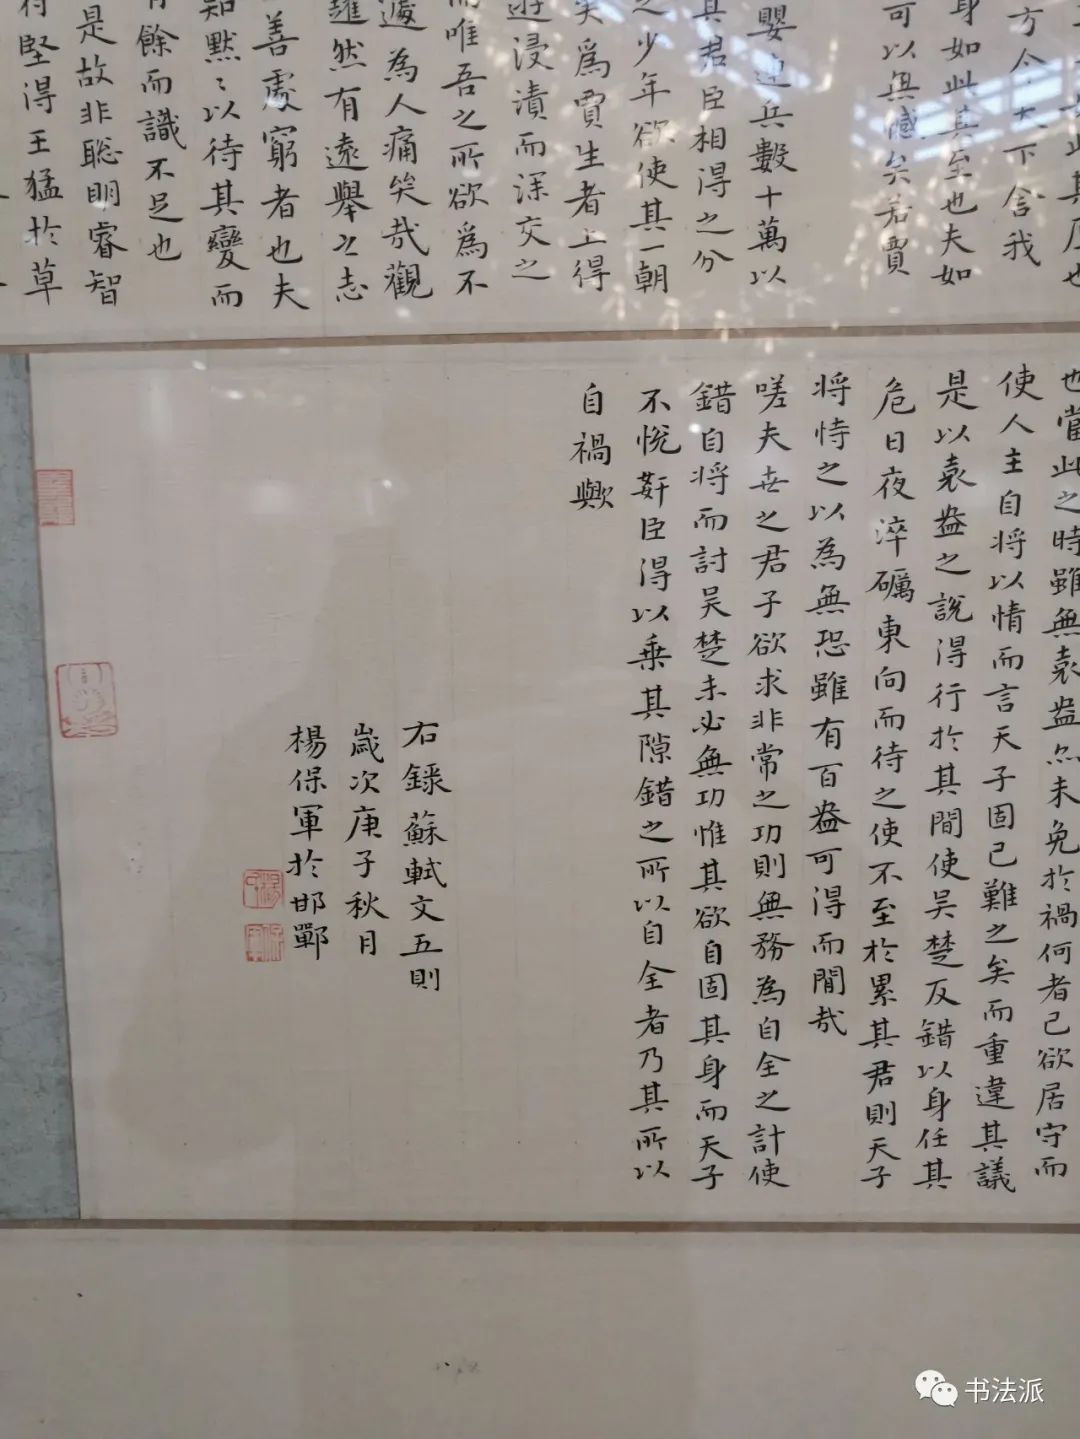 此其厚也
方今天下舍我
身如此其至也夫如
可以無憾矣若賈
嬰連兵數十萬以
其君臣相得之分
之少年欲使其一朝
矣為賈生者上得
遊浸漬而深交之
而唯吾之所欲為不
遽為人痛哭哉觀
趯然有遠舉之志
善處窮者也夫
知默〻以待其變而
有餘而識不足也
是故非聰明睿智
苻堅得王猛於草
也當此之時雖無袁盎亦未免於禍何者己欲居守而
使人主自將以情而言天子固已難之矣而重違其議
是以袁盎之說得行於其間使吳楚反錯以身任其
危日夜淬礪東向而待之使不至於累其君則天子
將恃之以為無恐雖有百盎可得而閒哉
嗟夫世之君子欲求非常之功則無務為自全之計使
錯自將而討吳楚未必無功惟其欲自固其身而天子
不悅姧臣得以乗其隙錯之所以自全者乃其所以
自禍歟
右錄蘇軾文五則
歲次庚子秋月
楊保軍於邯鄲
书法派